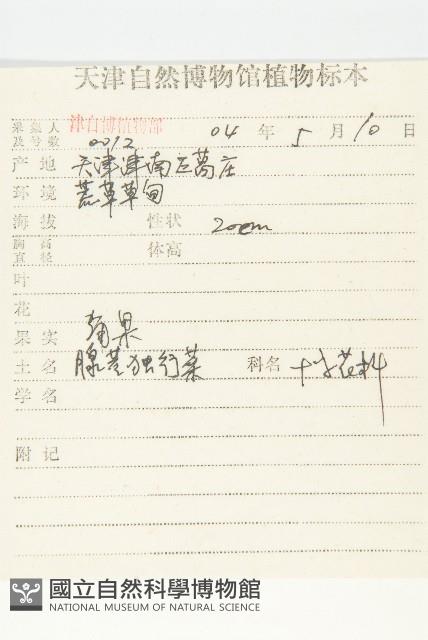 天津自然博物馆植物标本
采集人及号数 津自博植物部 0012 04 年 5 月 10 日
产地 天津津南区葛庄
环境 荒草草甸
海拔 性状 20cm
胸高直径 体高
叶
花
果实 角果
土名 腺茎独行菜 科名 十字花科
学名
附记
國立自然科學博物館
NATIONAL MUSEUM OF NATURAL SCIENCE